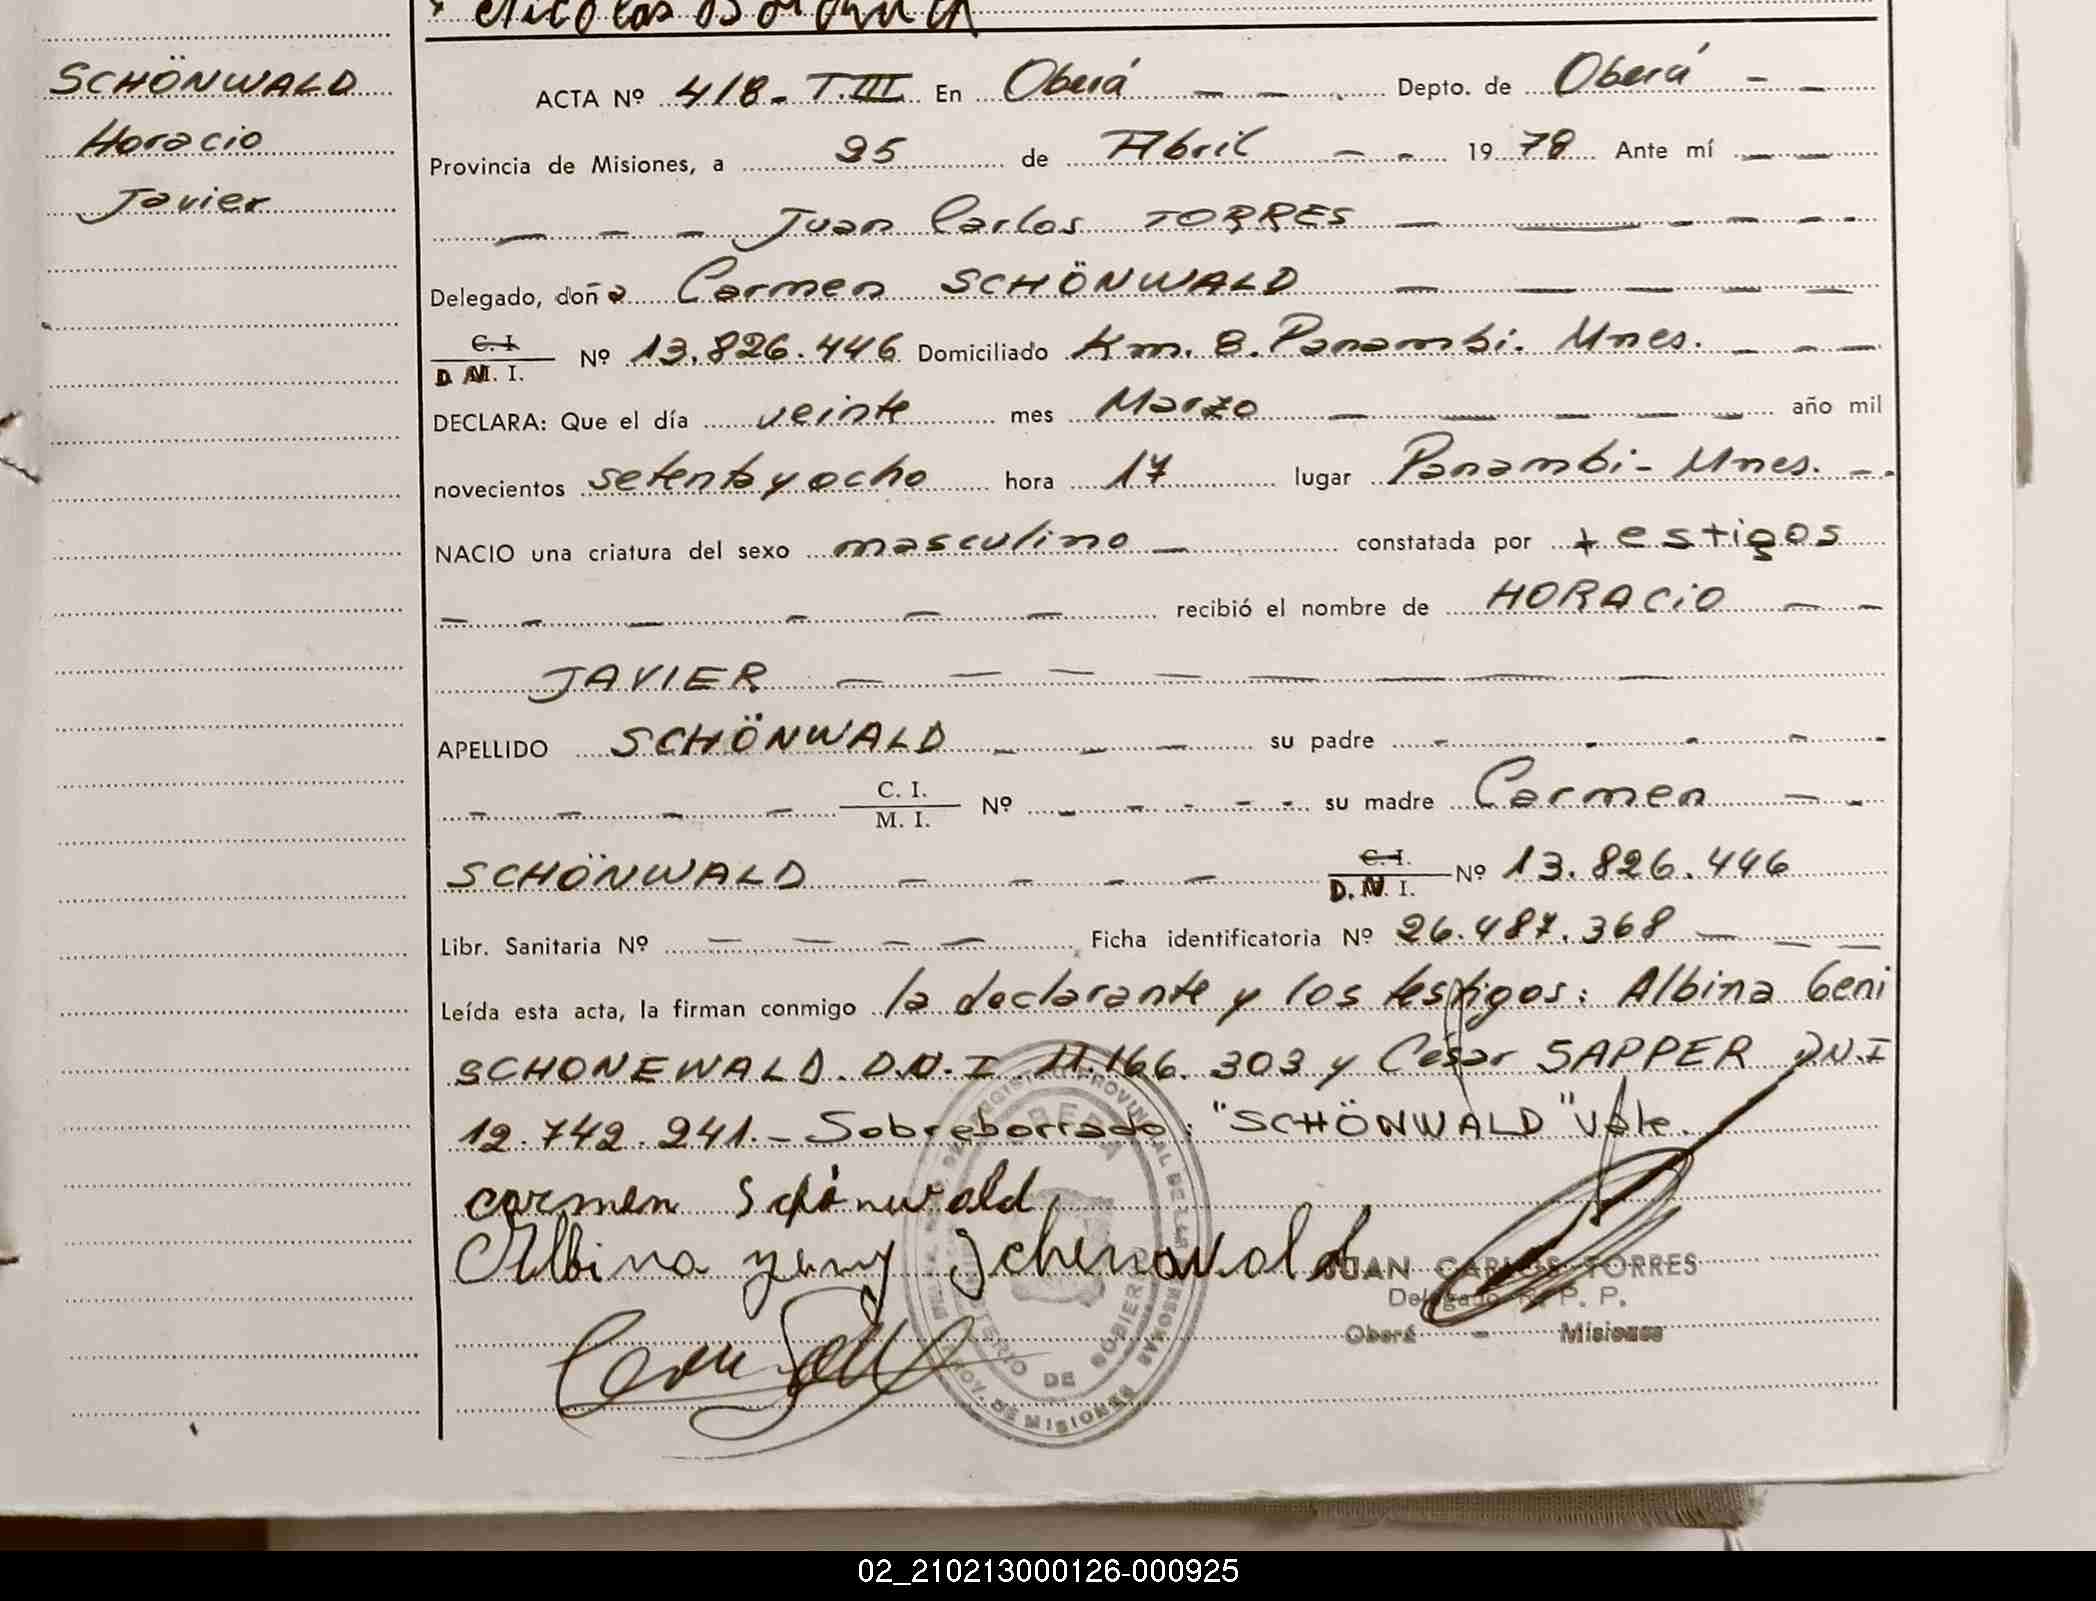 SCHÖNWALD
Horacio
Javier
ACTA Nº 418 - T. III En Oberá - - Depto. de Oberá - -
Provincia de Misiones, a 25 de Abril - - 19 78 Ante mí - -
- - - Juan Carlos TORRES - - - - - -
Delegado, doña Carmen SCHÖNWALD - - - - -
C. I. D.N.I. Nº 13.826.446 Domiciliado Km. 8. Panambi. Mnes. - - -
DECLARA: Que el día veinte mes Marzo - - - - - año mil
novecientos setenta y ocho hora 17 lugar Panambi - Mnes. - -
NACIO una criatura del sexo masculino - constatada por testigos
- - - - - - recibió el nombre de HORACIO - -
JAVIER - - - - - - -
APELLIDO SCHÖNWALD - - - su padre - - - - -
- - - - C. I. M. I. Nº - - - - - su madre Carmen - -
SCHÖNWALD - - - - C. I. D.N.I. Nº 13.826.446
Libr. Sanitaria Nº - - - - Ficha identificatoria Nº 26.487.368 - - -
Leída esta acta, la firman conmigo la declarante y los testigos: Albina Geni
SCHONEWALD. D.N.I. 11.166.303 y Cesar SAPPER D.N.I
12.742.241. - Sobreborrado: "SCHÖNWALD" Vale.
carmen Schönwald
Albina yeny Schenavald
JUAN CARLOS TORRES
Delegado R. P. P.
Oberá - Misiones
REGISTRO PROVINCIAL DE LAS PERSONAS
MINISTERIO DE GOBIERNO
PROV. DE MISIONES
02_210213000126-000925